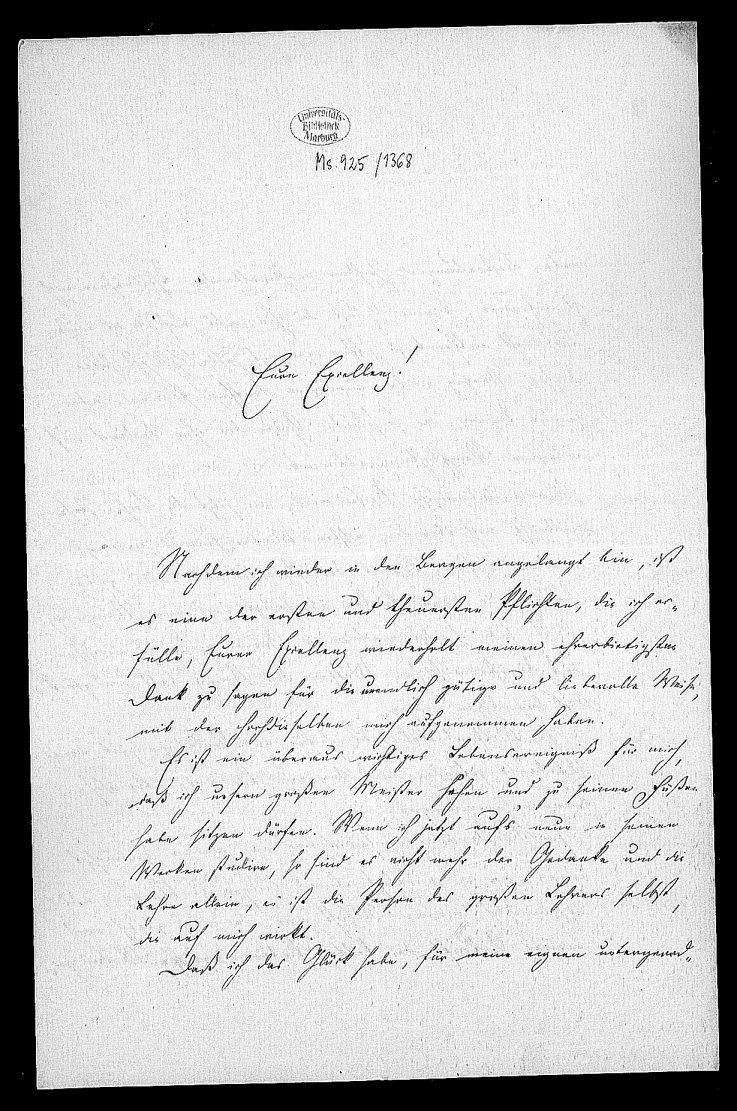 Universitäts-
Bibliothek
Marburg
Ms. 925/1368
Eure Exzellenz!
Nachdem ich wieder in den Bergen angelangt bin, ist
es eine der ersten und theuersten Pflichten, die ich er-
fülle, Eurer Exzellenz wiederholt meinen ehrerbietigsten
Dank zu sagen für die unendlich gütige und liebevolle Weise,
mit der Hochdieselben mich aufgenommen haben.
Es ist ein überaus wichtiges Lebensereigniß für mich,
daß ich unsern großen Meister sehen und zu seinen Füßen
habe sitzen dürfen. Wenn ich jetzt aufs neue in seinen
Werken studire, so sind es nicht mehr der Gedanke und die
Lehre allein, es ist die Person des großen Lehrers selbst,
die auf mich wirkt.
Daß ich das Glück habe, für meine eignen untergeord-